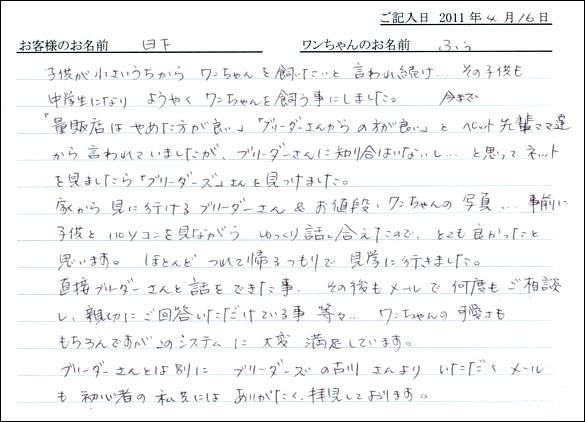 ご記入日 2011年4月16日
お客様のお名前 日下 ワンちゃんのお名前 ふぅ
子供が小さいうちから ワンちゃんを飼いたいと 言われ続け… その子供も
中学生になり ようやく ワンちゃんを飼う事にしました。 今まで
「量販店は やめた方が良い」「ブリーダーさんからの方が良い」と ペット先輩ママ達
から言われていましたが、ブリーダーさんに知り合はいないし… と思って ネット
を見ましたら「ブリーダーズ」さんを見つけました。
家から見に行けるブリーダーさん & お値段、ワンちゃんの写真… 事前に
子供とパソコンを見ながら ゆっくり話し合えたので、とても良かったと
思います。 ほとんど つれて帰るつもりで 見学に行きました。
直接ブリーダーさんと話をできた事、 その後もメールで何度もご相談
し、親切にご回答いただけている事 等々… ワンちゃんの可愛さも
もちろんですが このシステムに 大変 満足しています。
ブリーダーさんとは別に ブリーダーズの吉川さんより いただくメール
も 初心者の私達には ありがたく、拝見しております。